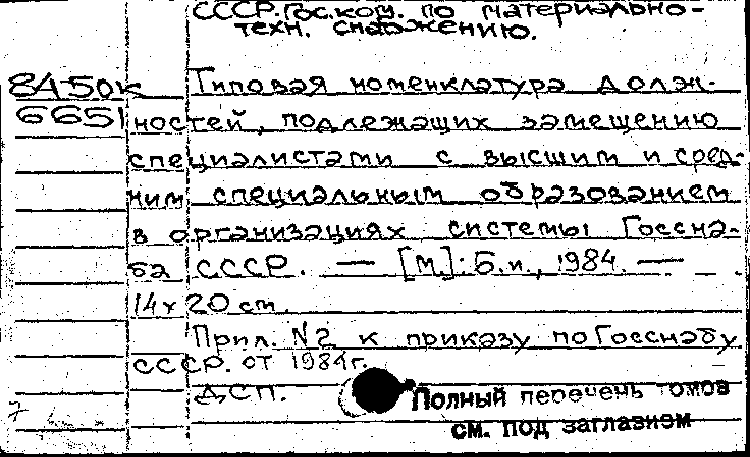 СССР. Гос. ком. по материально-
техн. снабжению.
84-50к Типовая номенклатура долж-
6651 ностей, подлежащих замещению
специалистами с высшим и сред-
ним специальным образованием
в организациях системы Госсна-
ба СССР. — [М.]: Б.и., 1984. —
14х20 см.
Прил. N2 к приказу по Госснабу
СССР. от 1984г.
ДСП.
Полный перечень томов
см. под заглавием